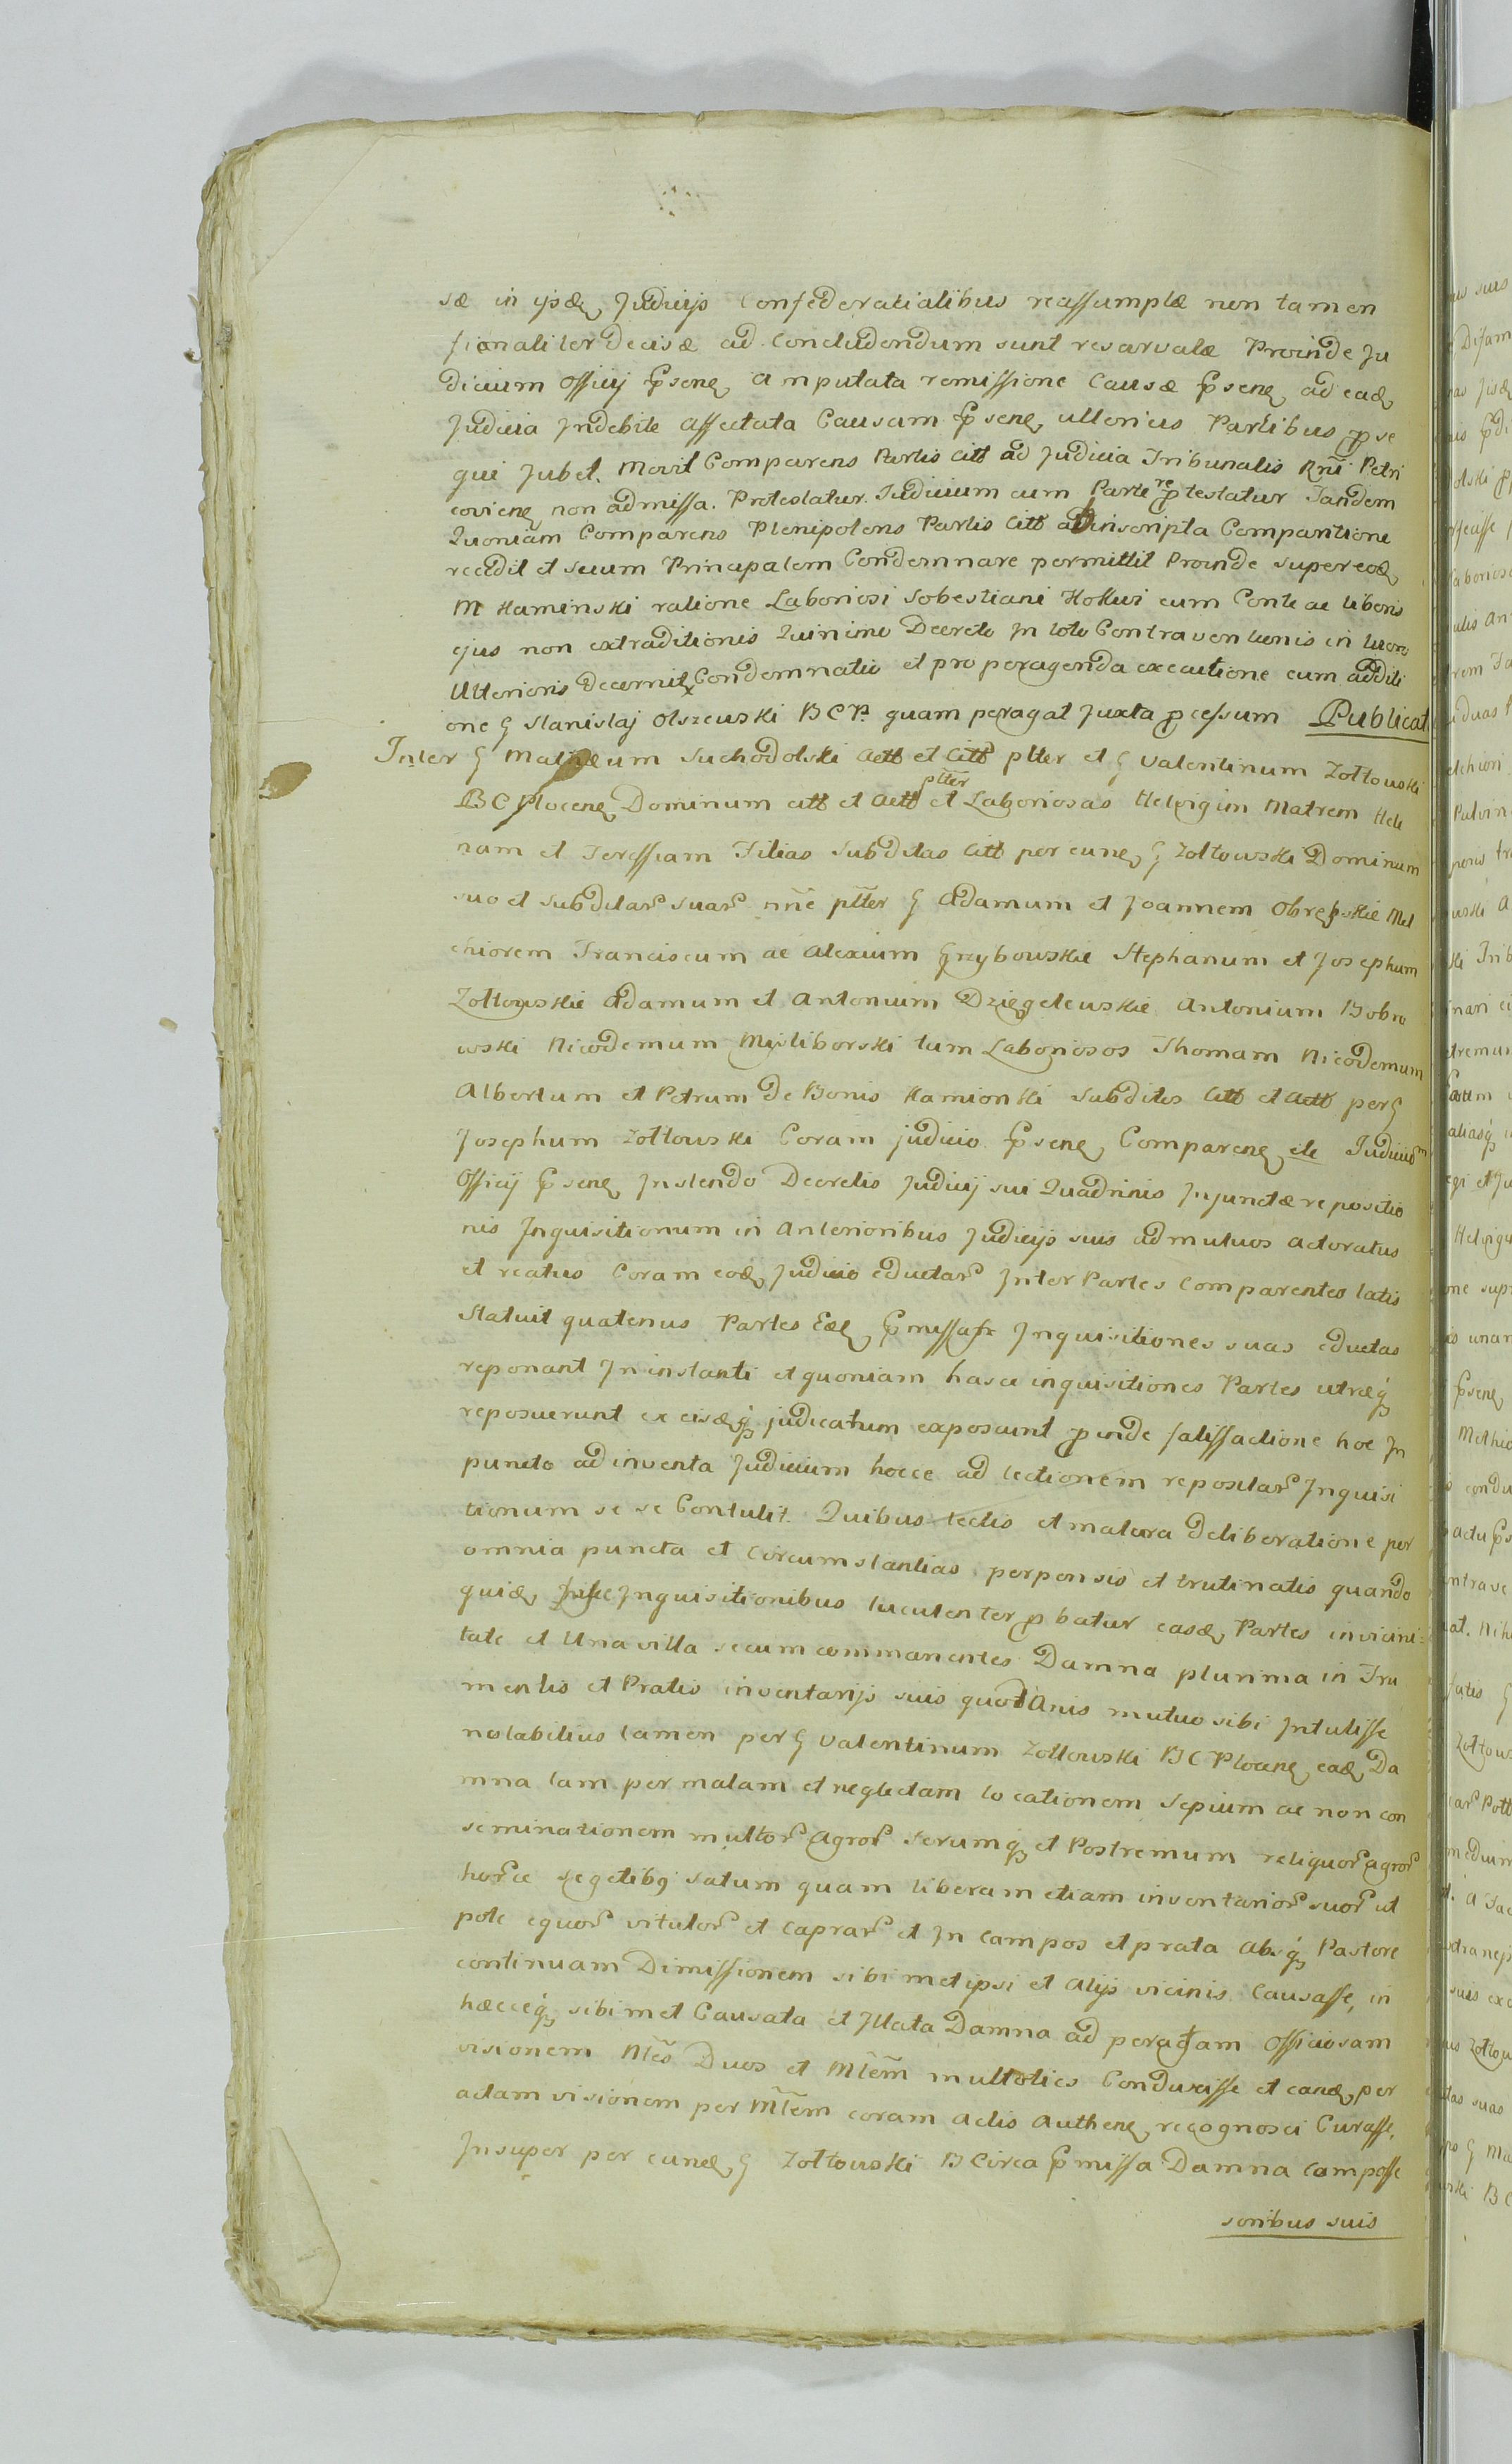 sæ in ijsdę Judicijs Confederatialibus reassumptæ non tamen
finaliter decisæ ad Concludendum sunt reservatæ Proinde Ju
dicium Officij Psenę amputata remissione Causæ Psenę ad eadę
Judicia Indebite affectata Causam Psenę ulterius Partibus pse
qui Jubet. Movit Comparens Partis Citt ad Judicia Tribunalis Rni Petri
covienę non admissa. Protestatur. Judicium cum Parte re ptestatur Tandem
Quoniam Comparens Plenipotens Partis Citt ab inscripta Comparitione
recedit et suum Principalem Condemnare permittit Proinde super eodę
M Kaminski ratione Laboriosi Sobestiani Kollwi cum Conte ac liberis
ejus non extraditionis Quinimo Decreto In toto Contraventionis in lucro
Ulterioris decernit Condemnatio et pro peragenda executione cum additi
one G Stanislaj Olszewski BCP. quam peragat Juxta pcessum Publicat
Inter G Mathæum Suchodolski Actt et Citt ptter et G Valentinum Zołtowski
BC Plocenę Dominum citt et Actt ptter et Laboriosas Helvigim Matrem Hele
nam et Teressiam Filias Subditas Citt per eunę G Zołtowski Dominum
suo et subditar suar nnĕ ptter G Adamum et Joannem Obrębskie Mel
chiorem Franciscum ac Alexium Grzybowskie Stephanum et Josephum
Zołtowskie Adamum et Antonium Dzięgelewskie Antonium Bobro
wski Nicodemum Mysliborski tum Laboriosos Thomam Nicodemum
Albertum et Petrum de Bonis Kamionki Subditos Citt et Actt per G
Josephum Zołtowski Coram judicio Psenę Comparenę etc Judicium
Officij Psenę Instendo Decretis Judicij sui Quadrinis Injunctæ repositio
nis Inquisitionum in Anterioribus Judicijs suis ad mutuos actoratus
et reatus Coram eodę Judicio eductar Inter Partes Comparentes latis
Statuit quatenus Partes Eædę Pmissa Inquisitiones suas eductas
reponant In instanti et quoniam hasce inquisitiones Partes utræq
reposuerunt ex eisdęq judicatum exposcunt pinde satisfactione hoc In
puncto adinventa Judicium hocce ad lectionem repositar Inquisi
tionum se se Contulit. Quibus lectis et matura deliberatione per
omnia puncta et Circumstantias perpensis et trutinatis quando
quidę Inquisitionibus luculenter pbatur easdę Partes invicini
tate et Una villa secum commanentes Damna plurima in Fru
mentis et Pratis inventarijs suis quot Anis mutuo sibi Intulisse
notabilius tamen per G Valentinum Zołtowski BC Plocenę eadę Da
mna tam per malam et neglectam locationem Sepium ac non con
seminationem multor Agror serumq et Postremum reliquor agror
horce segetibq satum quam liberam etiam inventarior suor ut
pote equor vitulor et caprar et In campos et prata absq Pastore
continuam Dimissionem sibimet ipsi et Alijs vicinis Causasse, in
hæcceq sibimet Causata et Illata Damna ad peragtam Officiosam
visionem Ntes Duos et Mtem multoties Conduxisse et candę per
actam visionem per Mtem coram Actis Authenę recognosci Curasse,
Insuper per eundę G Zołtowski B Circa Pmissa Damna Compose
soribus suis